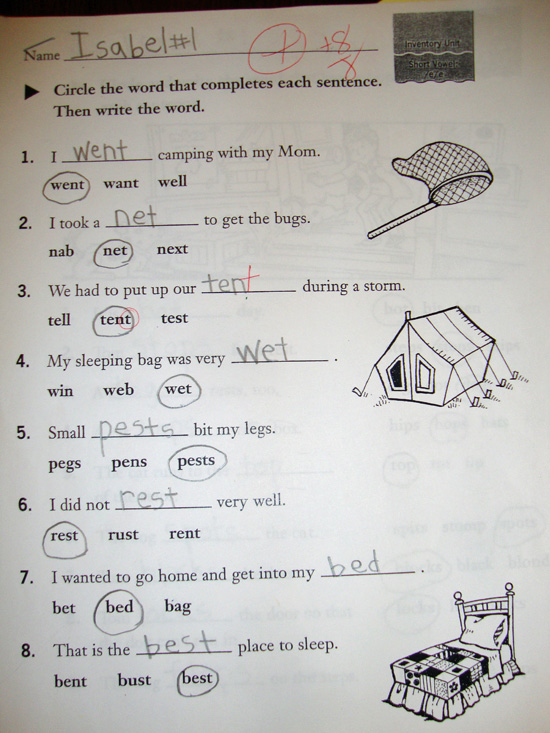 Name Isabel #1 + +8/8
Inventory Unit
Short Vowel
/e/e
Circle the word that completes each sentence.
Then write the word.
1. I went camping with my Mom.
went want well
2. I took a net to get the bugs.
nab net next
3. We had to put up our tent during a storm.
tell tent test
4. My sleeping bag was very wet .
win web wet
5. Small pests bit my legs.
pegs pens pests
6. I did not rest very well.
rest rust rent
7. I wanted to go home and get into my bed .
bet bed bag
8. That is the best place to sleep.
bent bust best